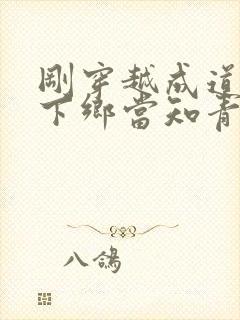 剛穿越成道
下鄉當知青
八鴿